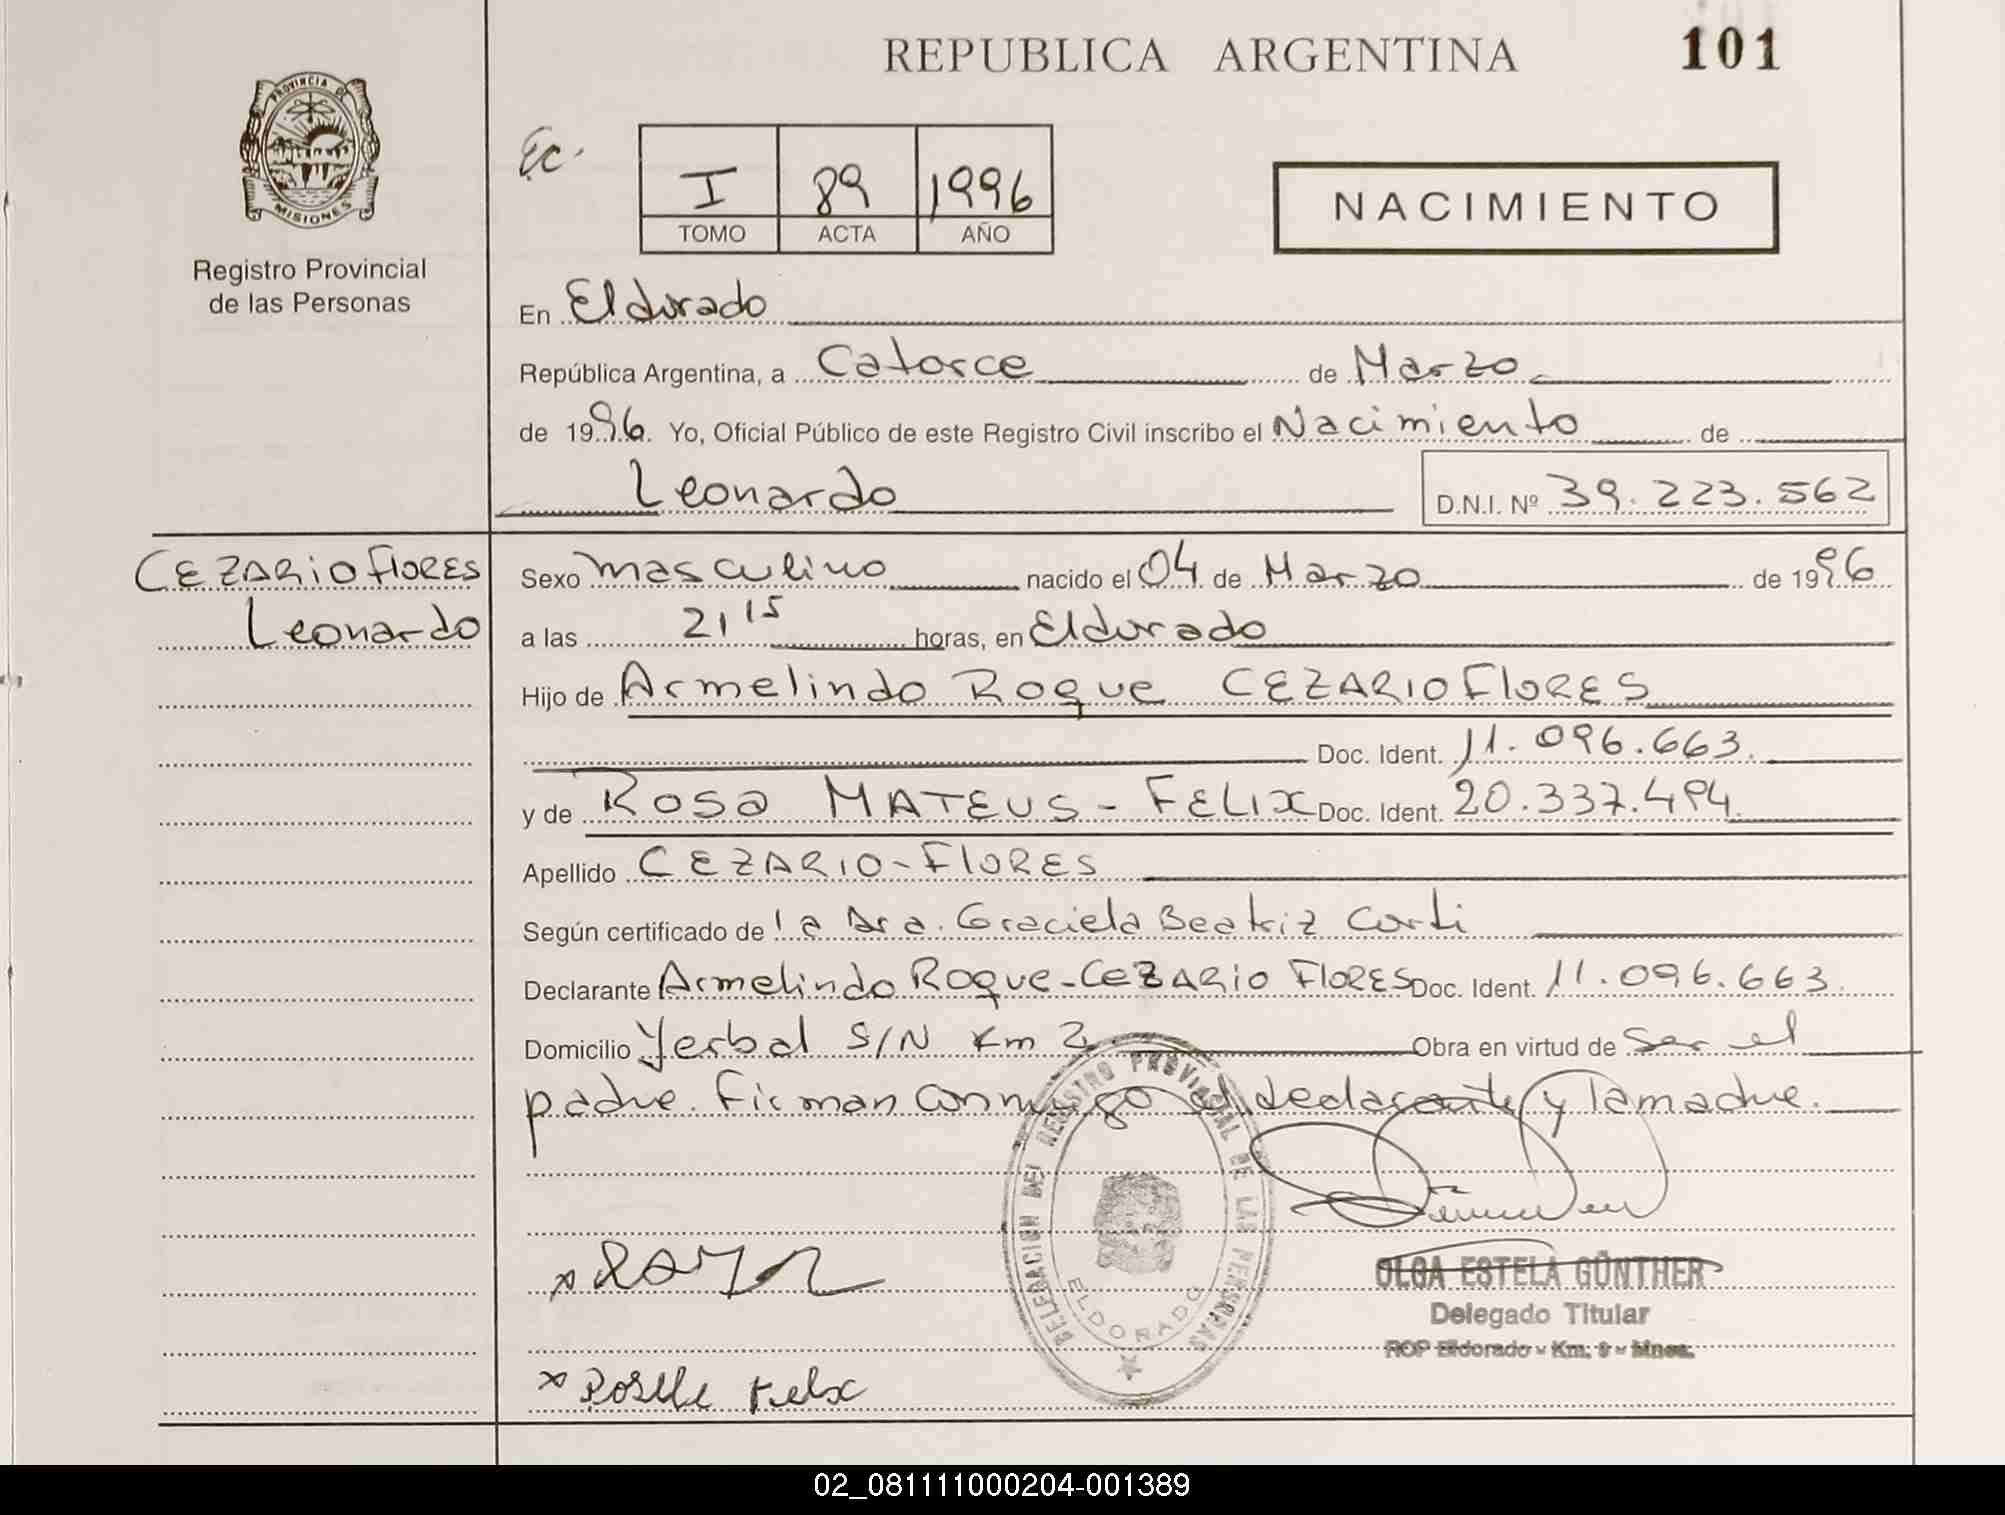 REPUBLICA ARGENTINA
101
PROVINCIA DE
MISIONES
Registro Provincial
de las Personas
I 89 1996
TOMO ACTA AÑO
NACIMIENTO
En Eldorado
República Argentina, a Catorce de Marzo
de 1996. Yo, Oficial Público de este Registro Civil inscribo el Nacimiento de
Leonardo D.N.I. Nº 39.223.562
CEZARIO FLORES
Leonardo
Sexo masculino nacido el 04 de Marzo de 1996
a las 21 15 horas, en Eldorado
Hijo de Armelindo Roque CEZARIO FLORES
Doc. Ident. 11.096.663.
y de Rosa MATEUS - FELIX Doc. Ident. 20.337.494.
Apellido CEZARIO-FLORES
Según certificado de la Dra. Graciela Beatriz Corti
Declarante Armelindo Roque-CEZARIO FLORES Doc. Ident. 11.096.663.
Domicilio Yerbal S/N Km 2 Obra en virtud de Ser el
padre. Firman conmigo el declarante y la madre.
DELEGACION DEL REGISTRO PROVINCIAL DE LAS PERSONAS
ELDORADO
OLGA ESTELA GÜNTHER
Delegado Titular
RDP Eldorado - Km. 9 - Mnes.
x Felix
02_081111000204-001389